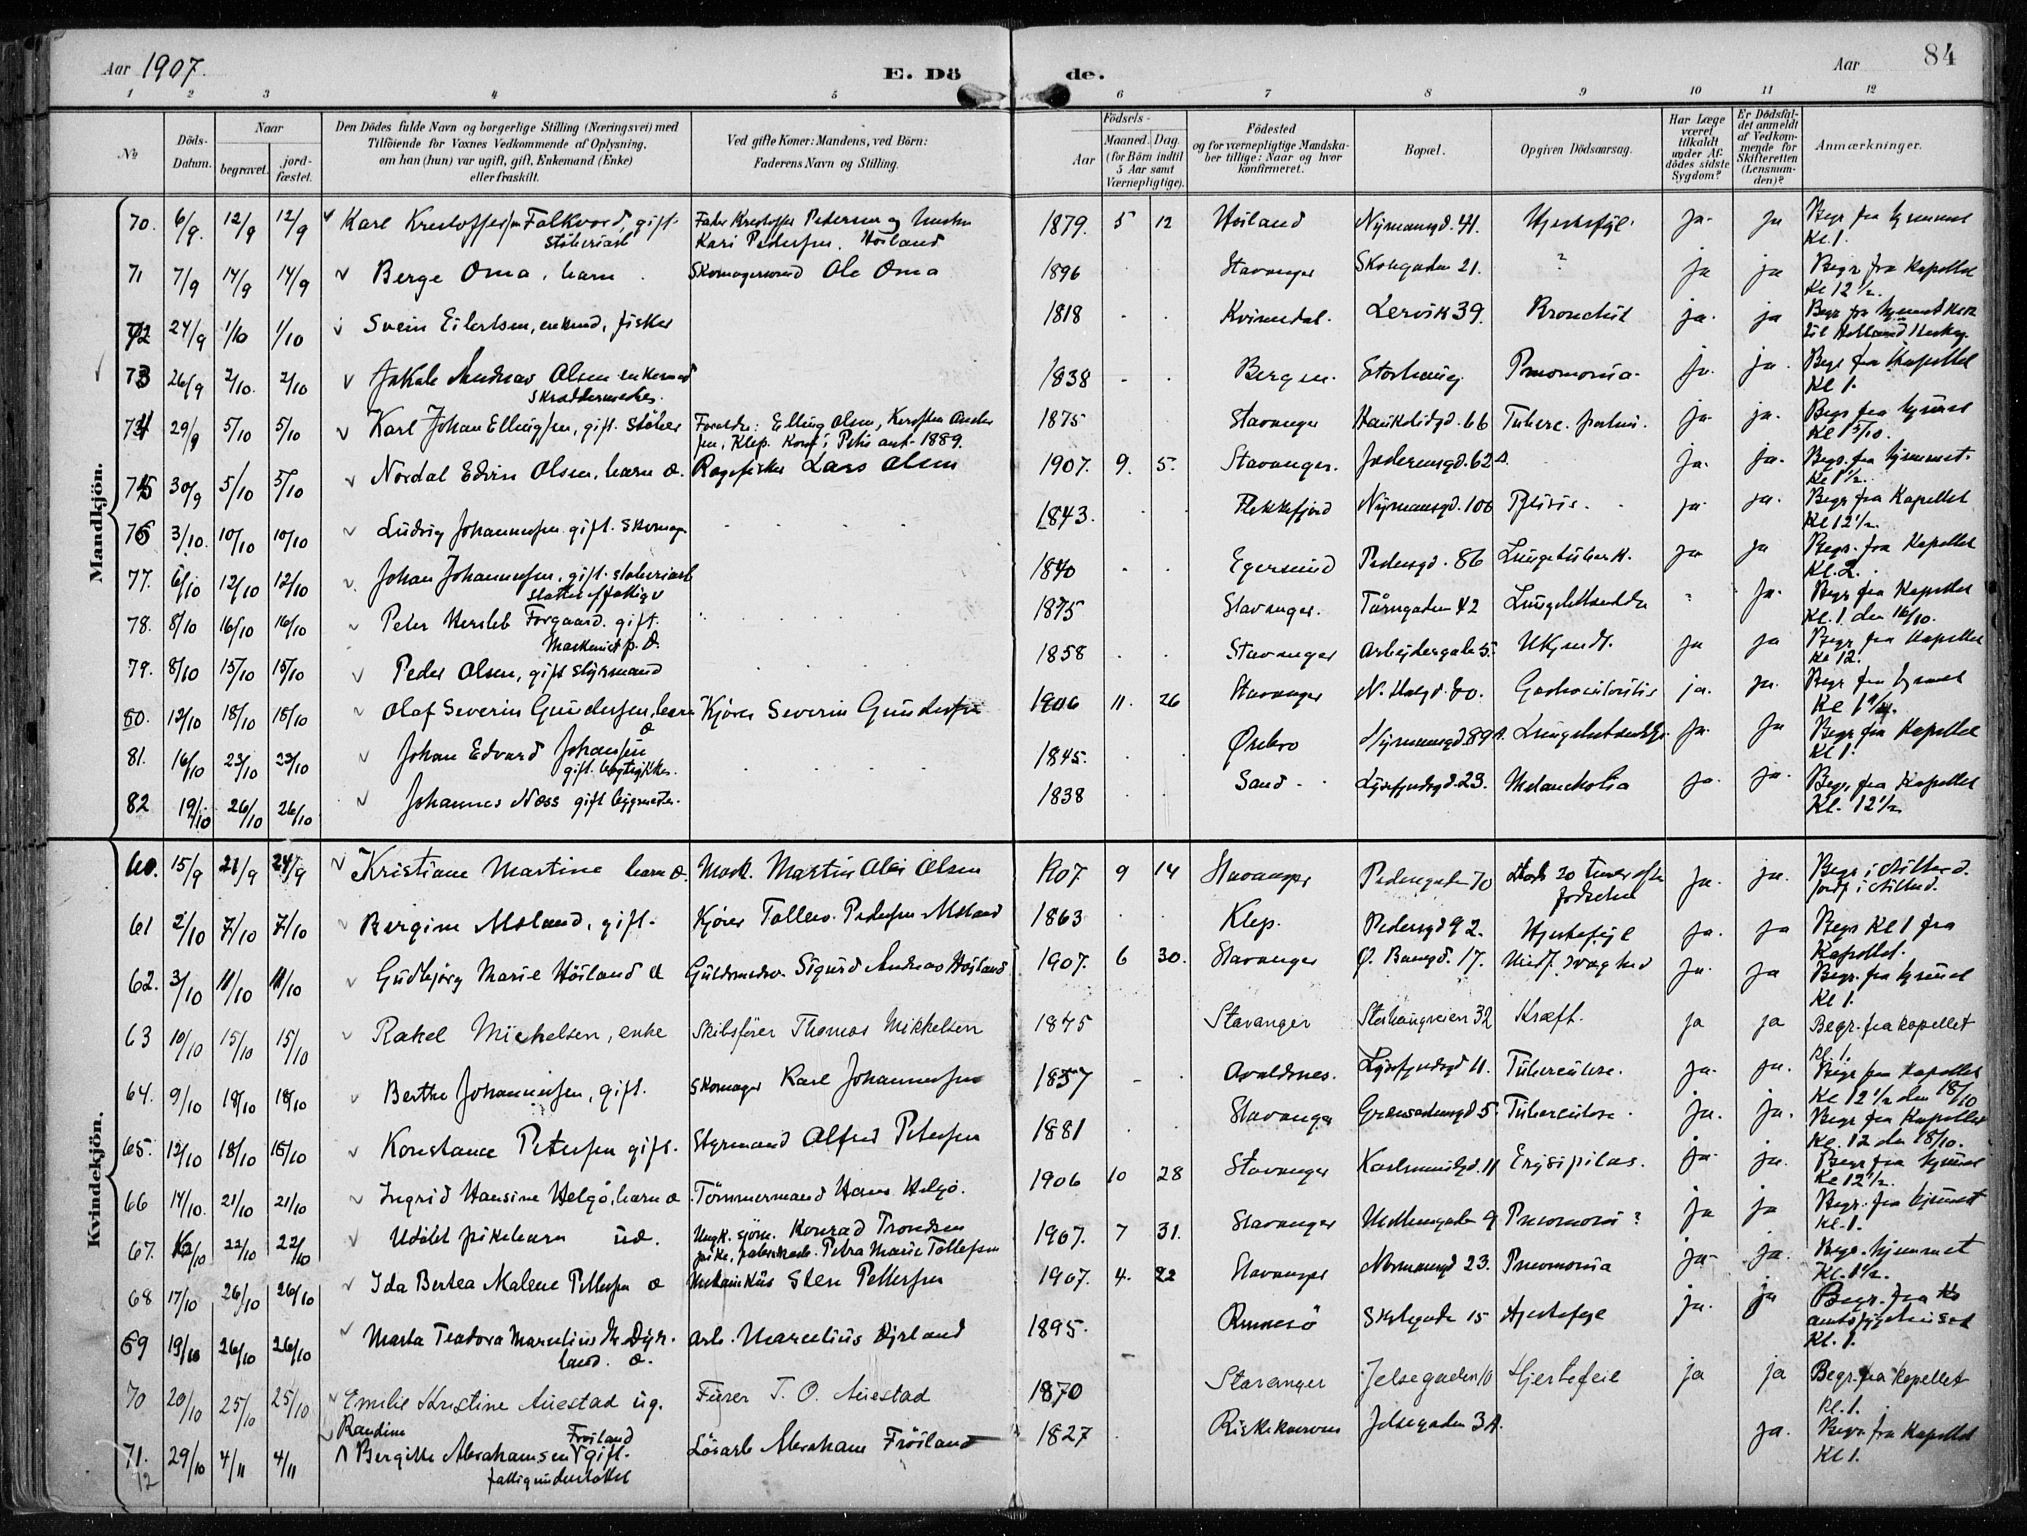 84
Aar 1907.
E. Döde.
Aar
1 2 3 4 5 6 7 8 9 10 11 12
No
Döds-Datum.
Naar
begravet.
jord-fæstet.
Den Dödes fulde Navn og borgerlige Stilling (Næringsvei) med
Tilföiende for Voxnes Vedkommende af Oplysning,
om han (hun) var ugift, gift, Enkemand (Enke)
eller fraskilt.
Ved gifte Koner: Mandens, ved Börn:
Faderens Navn og Stilling.
Födsels-
Aar
Maaned. Dag.
(for Börn indtil
5 Aar samt
Værnepligtige).
Födested
og for værnepligtige Mandska-
ber tillige: Naar og hvor
konfirmeret.
Bopæl.
Opgiven Dödsaarsag.
Har Læge
været
tilkaldt
under Af-
dödes sidste
Sygdom?
Er Dödsfal-
det anmeldt
af Vedkom-
mende for
Skifteretten
(Lensman-
den)?
Anmærkninger.
Mandkjön.
70. 6/9. 12/9 12/9 Karl Kristoffersen Falkvord, gift. 1879. 5 12 Höiland Nymansgd. 41. Hjertefejl. ja. ja Begr. fra hjemmet
Kari Pedersen. Höiland Kl. 1.
71 7/9 14/9 14/9 Berge Oma, barn Ole Oma 1896 Stavanger Skolegaden 21. ? ja ja Begr. fra Kapellet
Kl 12 1/2.
72 24/9 1/10 1/10 Svein Eilertsen, enkemd, fisker 1818 Kvinesdal. Lervik 39. Bronchit ja. ja
73 26/9 2/10. 2/10 Jakob Andreas Olsen enkemand 1838 Bergen. Storhaug Pneumonia. ja. ja. Begr. fra Kapellet
Skræddermester. Kl 1.
74 29/9 5/10 5/10 Karl Johan Ellingsen, gift. Støber Foreldre: Elling Olsen, 1875 Stavanger 66 ja. ja. Begr. fra hjemmet
Klep. Konf. i Petri 1889. Kl 1 5/10.
75 30/9 5/10 5/10 Nordal Edvin Olsen, barn æ. Lars Olsen 1907. 9. 5. Stavanger. Jæderensgd. 62 A. ja. ja. Begr. fra hjemmet.
Kl 1 1/2.
76 3/10. 10/10 10/10 Ludvig Johannesen gift. Skomager 1843. Flekkefjord Nymansgd. 106 ja. ja. Begr fra Kapellet
Kl 12 1/2.
77. 6/10 12/10 12/10 Johan Johannesen, gift. 1840 Egersund Pedersgd. 86 Lungetuberk. ja. ja Begr. fra Kapellet
Kl. 2.
78. 8/10 16/10 16/10 Peter Hersleb Forgaard. gift. 1875 Stavanger. Tårngaden 42 Ja. Begr. fra Kapellet
Maskinist p. D. Kl. 1. den 16/10.
79. 8/10 15/10 15/10 Peder Olsen, gift styrmand 1858 Stavanger Arbejdergade 5. Ukjendt. ja ja Begr. fra Kapellet
Kl 12.
80. 12/10 18/10 18/10 Olaf Severin Gundersen, barn Kjörer Severin Gundersen 1906 11. 26 Stavanger ja. ja. Begr. fra hjemmet
81. 16/10 23/10 23/10 Johan Edvard Johansen 1845. Ørebro Nymansgd. 89 A. ja. ja Begr. fra Kapellet
Kl 1.
82 19/10 26/10 26/10 Johannes Næss gift bygmester. 1838 Sand Lysefjordsgd. 23. Melancholia ja. ja. Begr. fra Kapellet
Kl. 12 1/2
Kvindekjön.
60. 15/9 21/9 24/9 Kristiane Martine barn æ. Mask. Martin Olai Olsen 1907 9 14 Stavanger Pedersgaden 70 Død 20 timer efter
fødselen ja. ja.
61 2/10 7/10 7/10 Bergine Mæland, gift. Kjörer Tollev Pedersen Mæland 1863 Klep. Pedersgd 92. Hjertefejl ja. ja Begr. Kl 1 fra
Kapellet.
62. 3/10 11/10 11/10 Gudbjörg Marie Höiland æ Guldsmedsv. Sigurd Andreas Höiland 1907. 6 30. Stavanger Ø. Bangd. 17. Medf. svaghed ja. ja Begr. fra hjemmet
Kl 1.
63 10/10 15/10 15/10 Rakel Mickelsen, enke Skibsförer Thomas Mikkelsen 1845 Stavanger Storhaugveien 32 Kræft. ja ja Begr. fra kapellet
kl. 1.
64. 9/10 18/10 18/10 Berthe Johannesen, gift. Skomager Karl Johannesen 1857 Avaldsnes. Lysefjordsgd 11. Tuberculose. ja. ja. Begr. fra Kapellet
Kl 12 1/2 den 18/10
65. 12/10 18/10 18/10 Konstance Petersen gift. Styrmand Alfred Petersen 1881 Stavanger 5 Tuberculose. ja. ja. Begr. fra Kapellet
Kl. 12 den 18/10.
66 14/10. 21/10 21/10 Ingrid Hansine Helgö, barn æ. Tömmermand Hans Helgö. 1906 10 28 Stavanger 11 Erysipilas. ja. ja. Begr. fra hjemmet
Kl 12 1/2.
67. 22/10 22/10 Udöbt pikebarn uæ. Ungk. sjöm. Konrad Trondsen
Petra Marie Tollefsen 1907. 7 31. Stavanger 9 Pneumoni? ja ja Begr. fra hjemmet
Kl. 1.
68 17/10 26/10 26/10 Ida Bertea Malene Pettersen æ Mekanikus Sten Pettersen 1907. 4. 22 Stavanger Normansgd 23. Pneumonia ja. ja. Begr. hjemmet
Kl. 1 1/2.
69 19/10 26/10 26/10 Marta Teodora Marselius arb. Marcelius Dyrland 1895. Rennesö Skolegade 15 Hjertefeje ja. ja Begr. fra
land. æ. amtssygehuset
Kl. 1.
70 20/10 25/10 25/10 Emilie Kristine Auestad ug. Furer T. O. Auestad 1870 Stavanger Jelsegaden 10 Hjertefeil ja ja Begr. fra kapellet
kl. 1.
71. 29/10 4/11 4/11 Randine Bergitte Abrahamsen Fröiland gift. Lösarb Abraham Fröiland 1827 Jelsegaden 3 A. ja. Begr. fra Kapellet
fattigunderstöttet Kl 1.
72